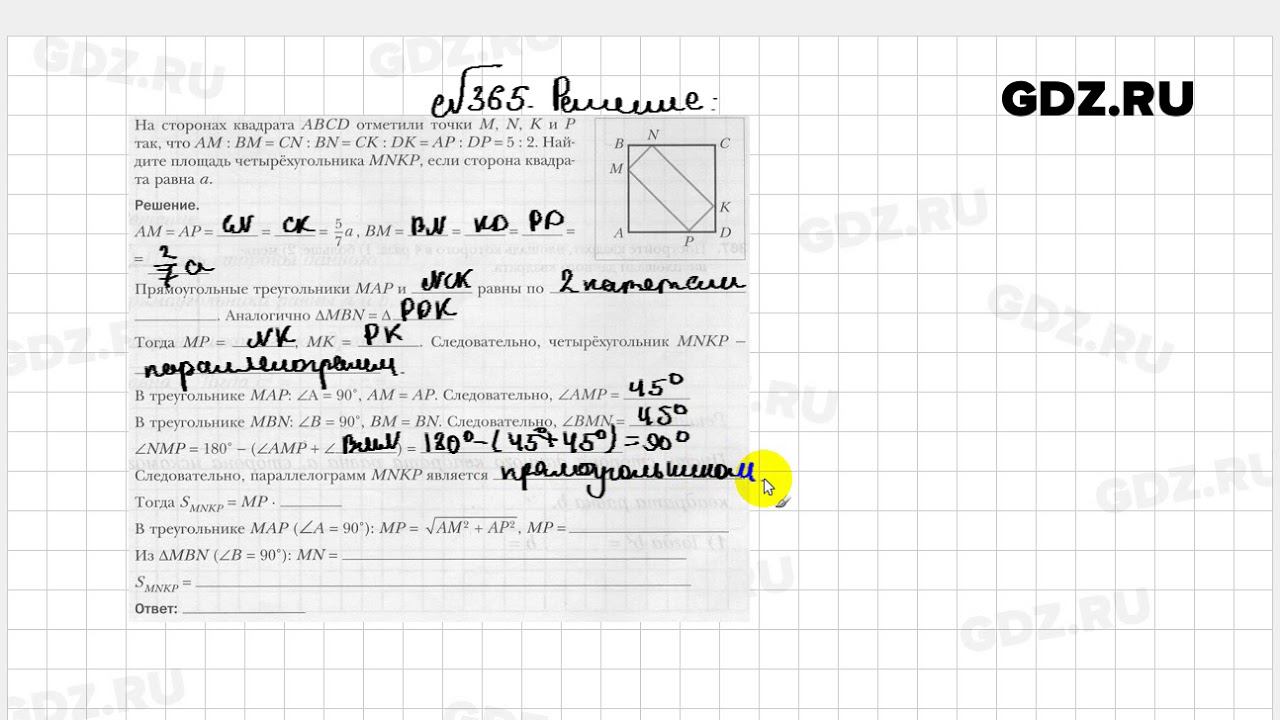 GDZ.RU
№365. Решение:
На сторонах квадрата ABCD отметили точки M, N, K и P
так, что AM : BM = CN : BN = CK : DK = AP : DP = 5 : 2. Най-
дите площадь четырёхугольника MNKP, если сторона квадра-
та равна a.
B N C
M
K
A P D
Решение.
AM = AP = CN = CK = 5/7 a, BM = BN = KD = PD =
= 2/7 a
Прямоугольные треугольники MAP и NCK равны по 2 катетам
. Аналогично ΔMBN = Δ PDK
Тогда MP = NK, MK = PK. Следовательно, четырёхугольник MNKP –
параллелограмм.
В треугольнике MAP: ∠A = 90°, AM = AP. Следовательно, ∠AMP = 45°
В треугольнике MBN: ∠B = 90°, BM = BN. Следовательно, ∠BMN = 45°
∠NMP = 180° – (∠AMP + ∠ BMN) = 180° – (45° + 45°) = 90°
Следовательно, параллелограмм MNKP является прямоугольником
Тогда S MNKP = MP ·
В треугольнике MAP (∠A = 90°): MP = √AM² + AP², MP =
Из ΔMBN (∠B = 90°): MN =
S MNKP =
Ответ: